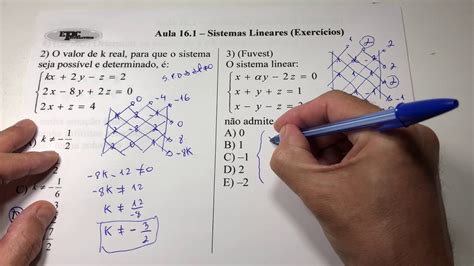 EPC
Aula 16.1 – Sistemas Lineares (Exercícios)
2) O valor de k real, para que o sistema
seja possível e determinado, é:
kx + 2y – z = 2
2x – 8y + 2z = 0
2x + z = 4
0 -4 -16
0
-8
-8k
A) k ≠ – 1/2
C) k ≠ – 1/6
-8k - 12 ≠ 0
-8k ≠ 12
k ≠ 12/-8
k ≠ - 3/2
3) (Fuvest)
O sistema linear:
x + αy – 2z = 0
x + y + z = 1
x – y – z =
não admite
A) 0
B) 1
C) –1
D) 2
E) –2